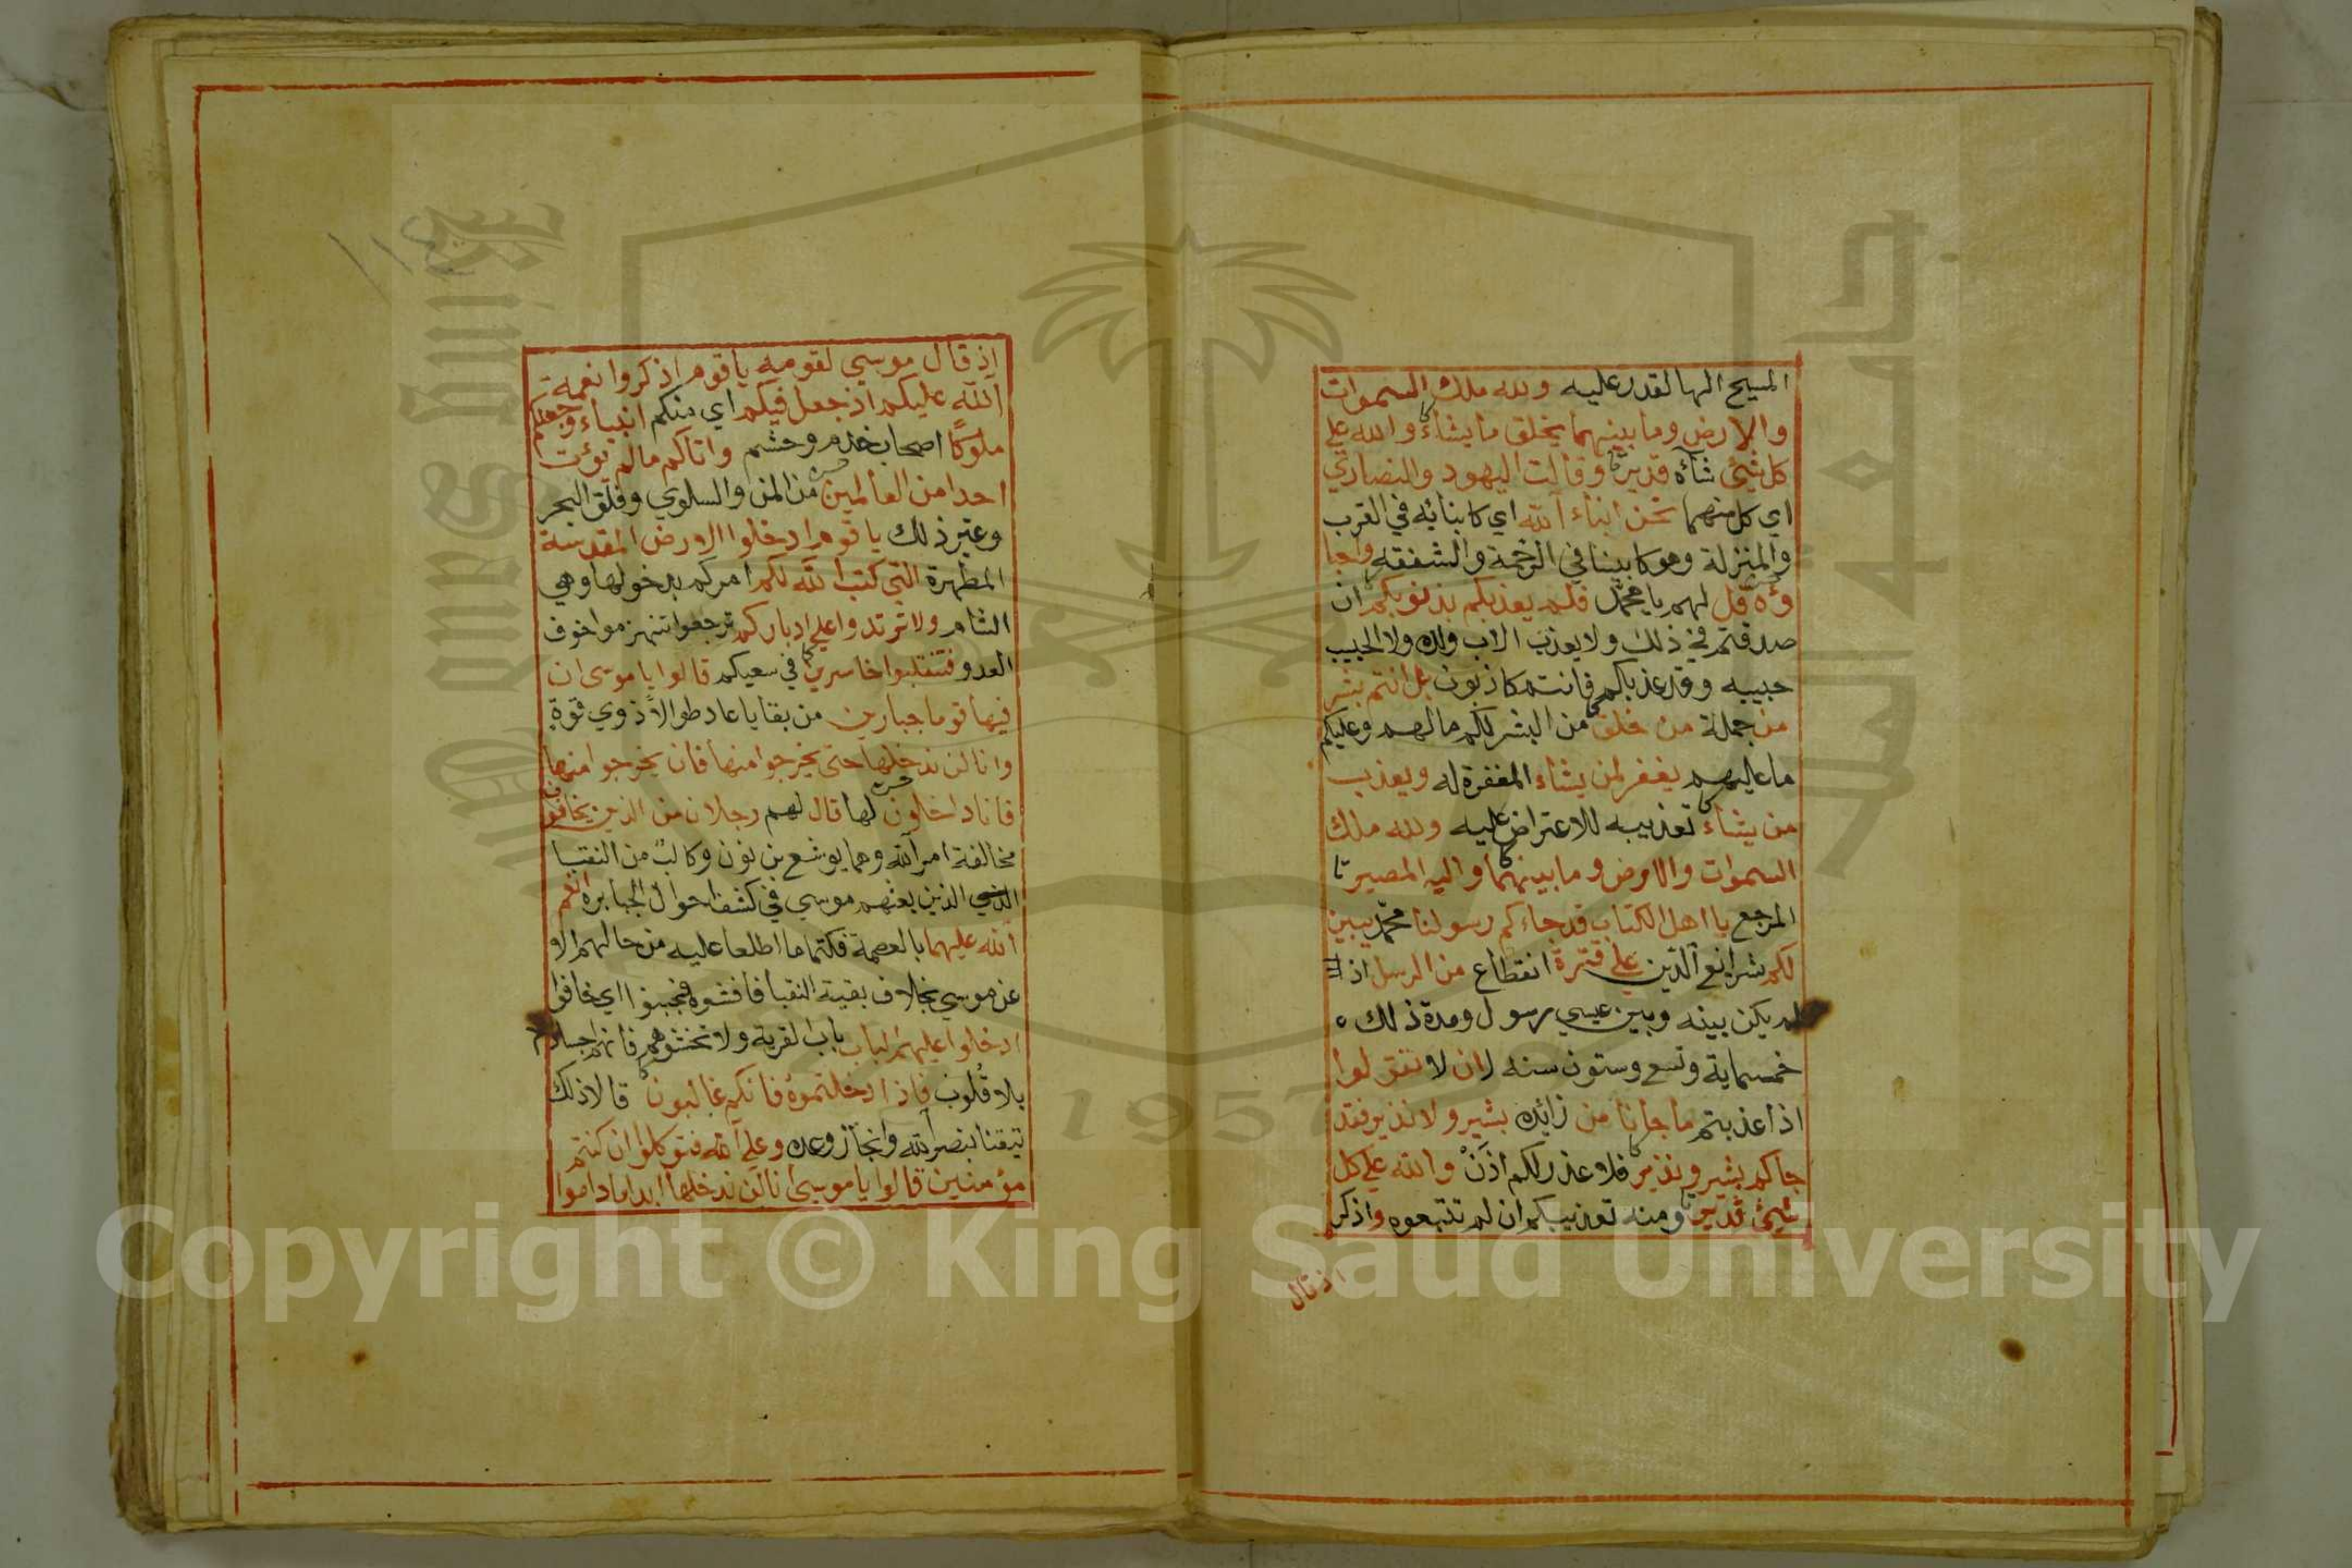 المسيح الها لقدر عليه ولله ملك السموات
والارض وما بينهما يخلق ما يشاء والله علي
كل شيئ شآه قدير وقالت اليهود والنصاري
اي كل منهما نحن ابناء الله اي كابنائه في القرب
والمنزلة وهو كابينا في الرحمة والشفقه واحبا
وه قل لهم يا محمد فلم يعذبكم بذنوبكم ان
صدقتم في ذلك ولا يعذب الاب ولده ولا الحبيب
حبيبه وقد عذبكم فانتم كاذبون بل انتم بشر
من جملة من خلق من البشر لكم ما لهم وعليكم
ما عليهم يغفر لمن يشاء المغفرة له ويعذب
من يشاء تعذيبه لا اعتراض عليه ولله ملك
السموات والارض وما بينهما واليه المصير
المرجع يا اهل الكتاب قد جاءكم رسولنا محمد يبين
لكم شرايع الدين علي فترة انقطاع من الرسل اذ
لم يكن بينه وبين عيسي رسول ومدة ذلك
خمسماية وتسع وستون سنه لان لا تقولوا
اذا عذبتم ما جانا من زايده بشير ولا نذير فقد
جاكم بشير ونذير فلا عذر لكم اذن والله علي كل
شيئ قدير ومنه تعذيبكم ان لم تتبعوه واذكر
اذ قال
١١٤
اذ قال موسي لقومه يا قوم اذكروا نعمة
الله عليكم اذ جعل فيكم اي منكم انبياء وجعلكم
ملوكا اصحاب خدم وحشم واتاكم ما لم يؤت
احدا من العالمين من المن والسلوي وفلق البحر
وغير ذلك يا قوم ادخلوا الارض المقدسة
المطهرة التي كتب الله لكم امركم بدخولها وهي
الشام ولا ترتدوا علي ادباركم ترجعوا تنهزموا خوف
العدو فتنقلبوا خاسرين في سعيكم قالوا يا موسى ان
فيها قوما جبارين من بقايا عاد طوالا ذوي قوة
وانا لن ندخلها حتى يخرجوا منها فان يخرجوا منها
فانا داخلون لها قال لهم رجلان من الذين يخافون
مخالفة امر الله وهما يوشع بن نون وكالب من النقبا
الذين بعثهم موسي في كشف احوال الجبابره انعم
الله عليهما بالعصمة فكتما ما اطلعا عليه من حالهم الا
عن موسي بخلاف بقية النقبا فافشوه فجبنوا اي خافوا
ادخلوا عليهم الباب باب القرية ولا تخشوهم فانهم اجساد
بلا قلوب فاذا دخلتموه فانكم غالبون قالا ذلك
تيقنا بنصر الله وانجاز وعده وعلي الله فتوكلوا ان كنتم
مؤمنين قالوا يا موسي انا لن ندخلها ابدا ما داموا
Copyright © King Saud University
King Saud University
جامعة الملك سعود
1957